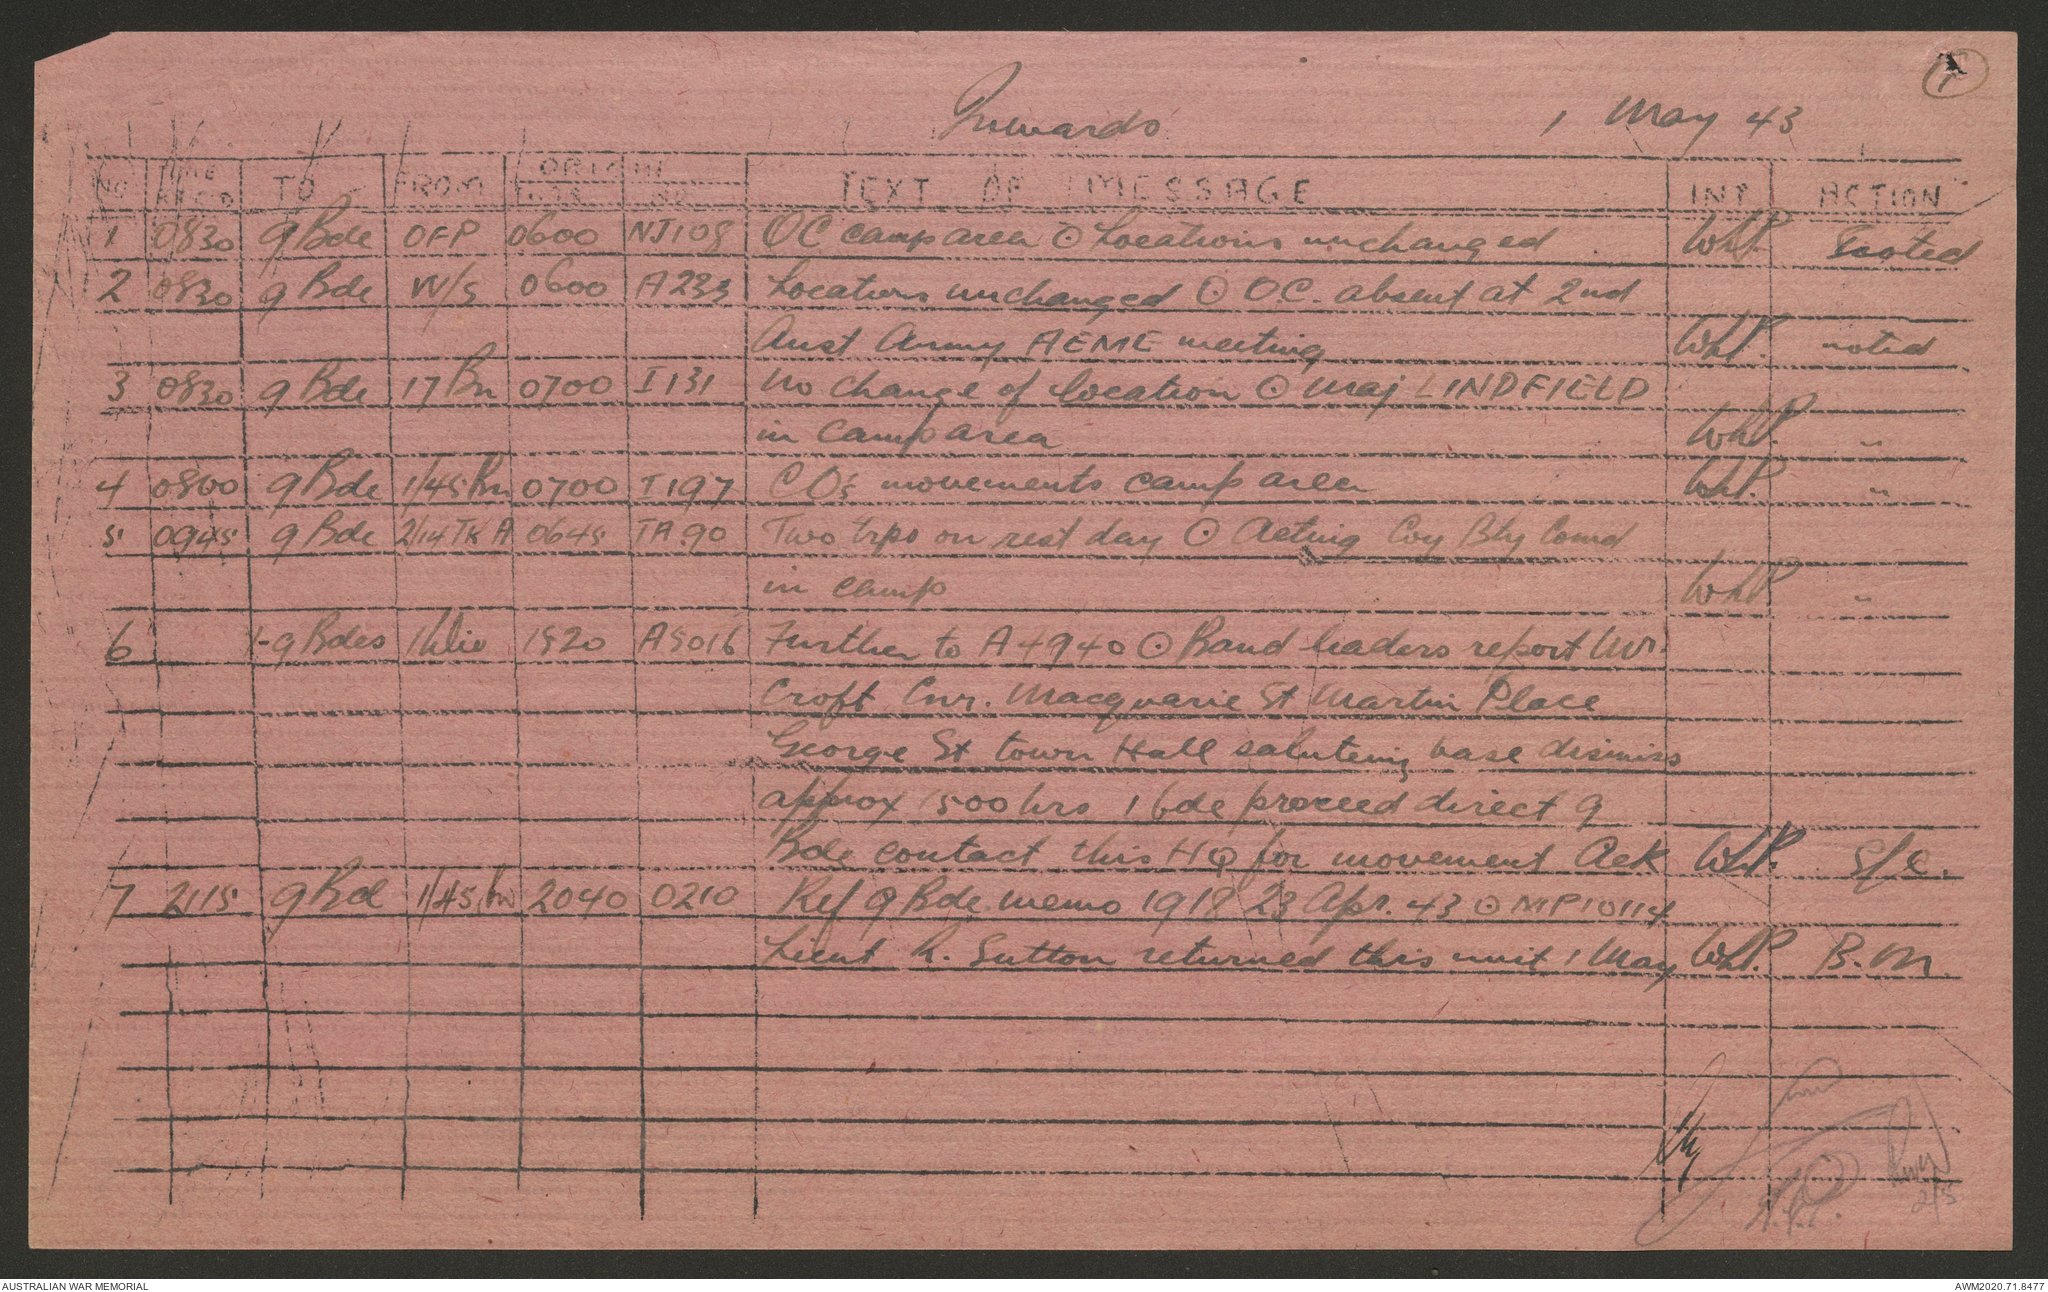 Inwards 1 May 43
NO TIME REC'D TO FROM ORIGIN TEXT OF MESSAGE INT ACTION
1 0830 9 Bde OFP 0600 NJ108 OC camp area ⊙ Locations unchanged WhP. noted
2 0830 9 Bde W/S 0600 A233 Locations unchanged ⊙ OC. absent at 2nd
Aust Army AEME meeting WhP. noted
3 0830 9 Bde 17 Bn 0700 I131 No change of location ⊙ Maj LINDFIELD
in camp area WhP. "
4 0800 9 Bde 1/45 Bn 0700 I197 CO's movements camp area WhP. "
5 0945 9 Bde 2/14 TK A 0645 IA90 Two trps on rest day ⊙ Acting Bty Comd
in camp WhP "
6 1-9 Bdes 1 Div 1520 A5016 Further to A4940 ⊙ Band leaders report Mr.
Croft Cnr. Macquarie St Martin Place
George St town Hall saluteing base dismiss
approx 1500 hrs 1 bde proceed direct 9
Bde contact this HQ for movement Ack WhP. S/C.
7 2115 9 Bd 1/45 Bn 2040 0210 Ref 9 Bde memo 1918 23 Apr. 43 ⊙ NP10114
Lieut R. Sutton returned this unit 1 May WhP. B.M.
2/5
AUSTRALIAN WAR MEMORIAL AWM2020.71.8477